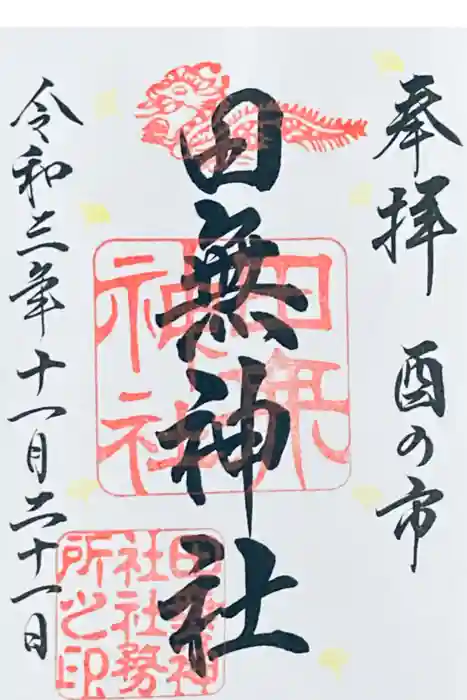 奉拝 酉の市
田無神社
令和三年十一月二十一日
田無神社
田無神社社務所之印